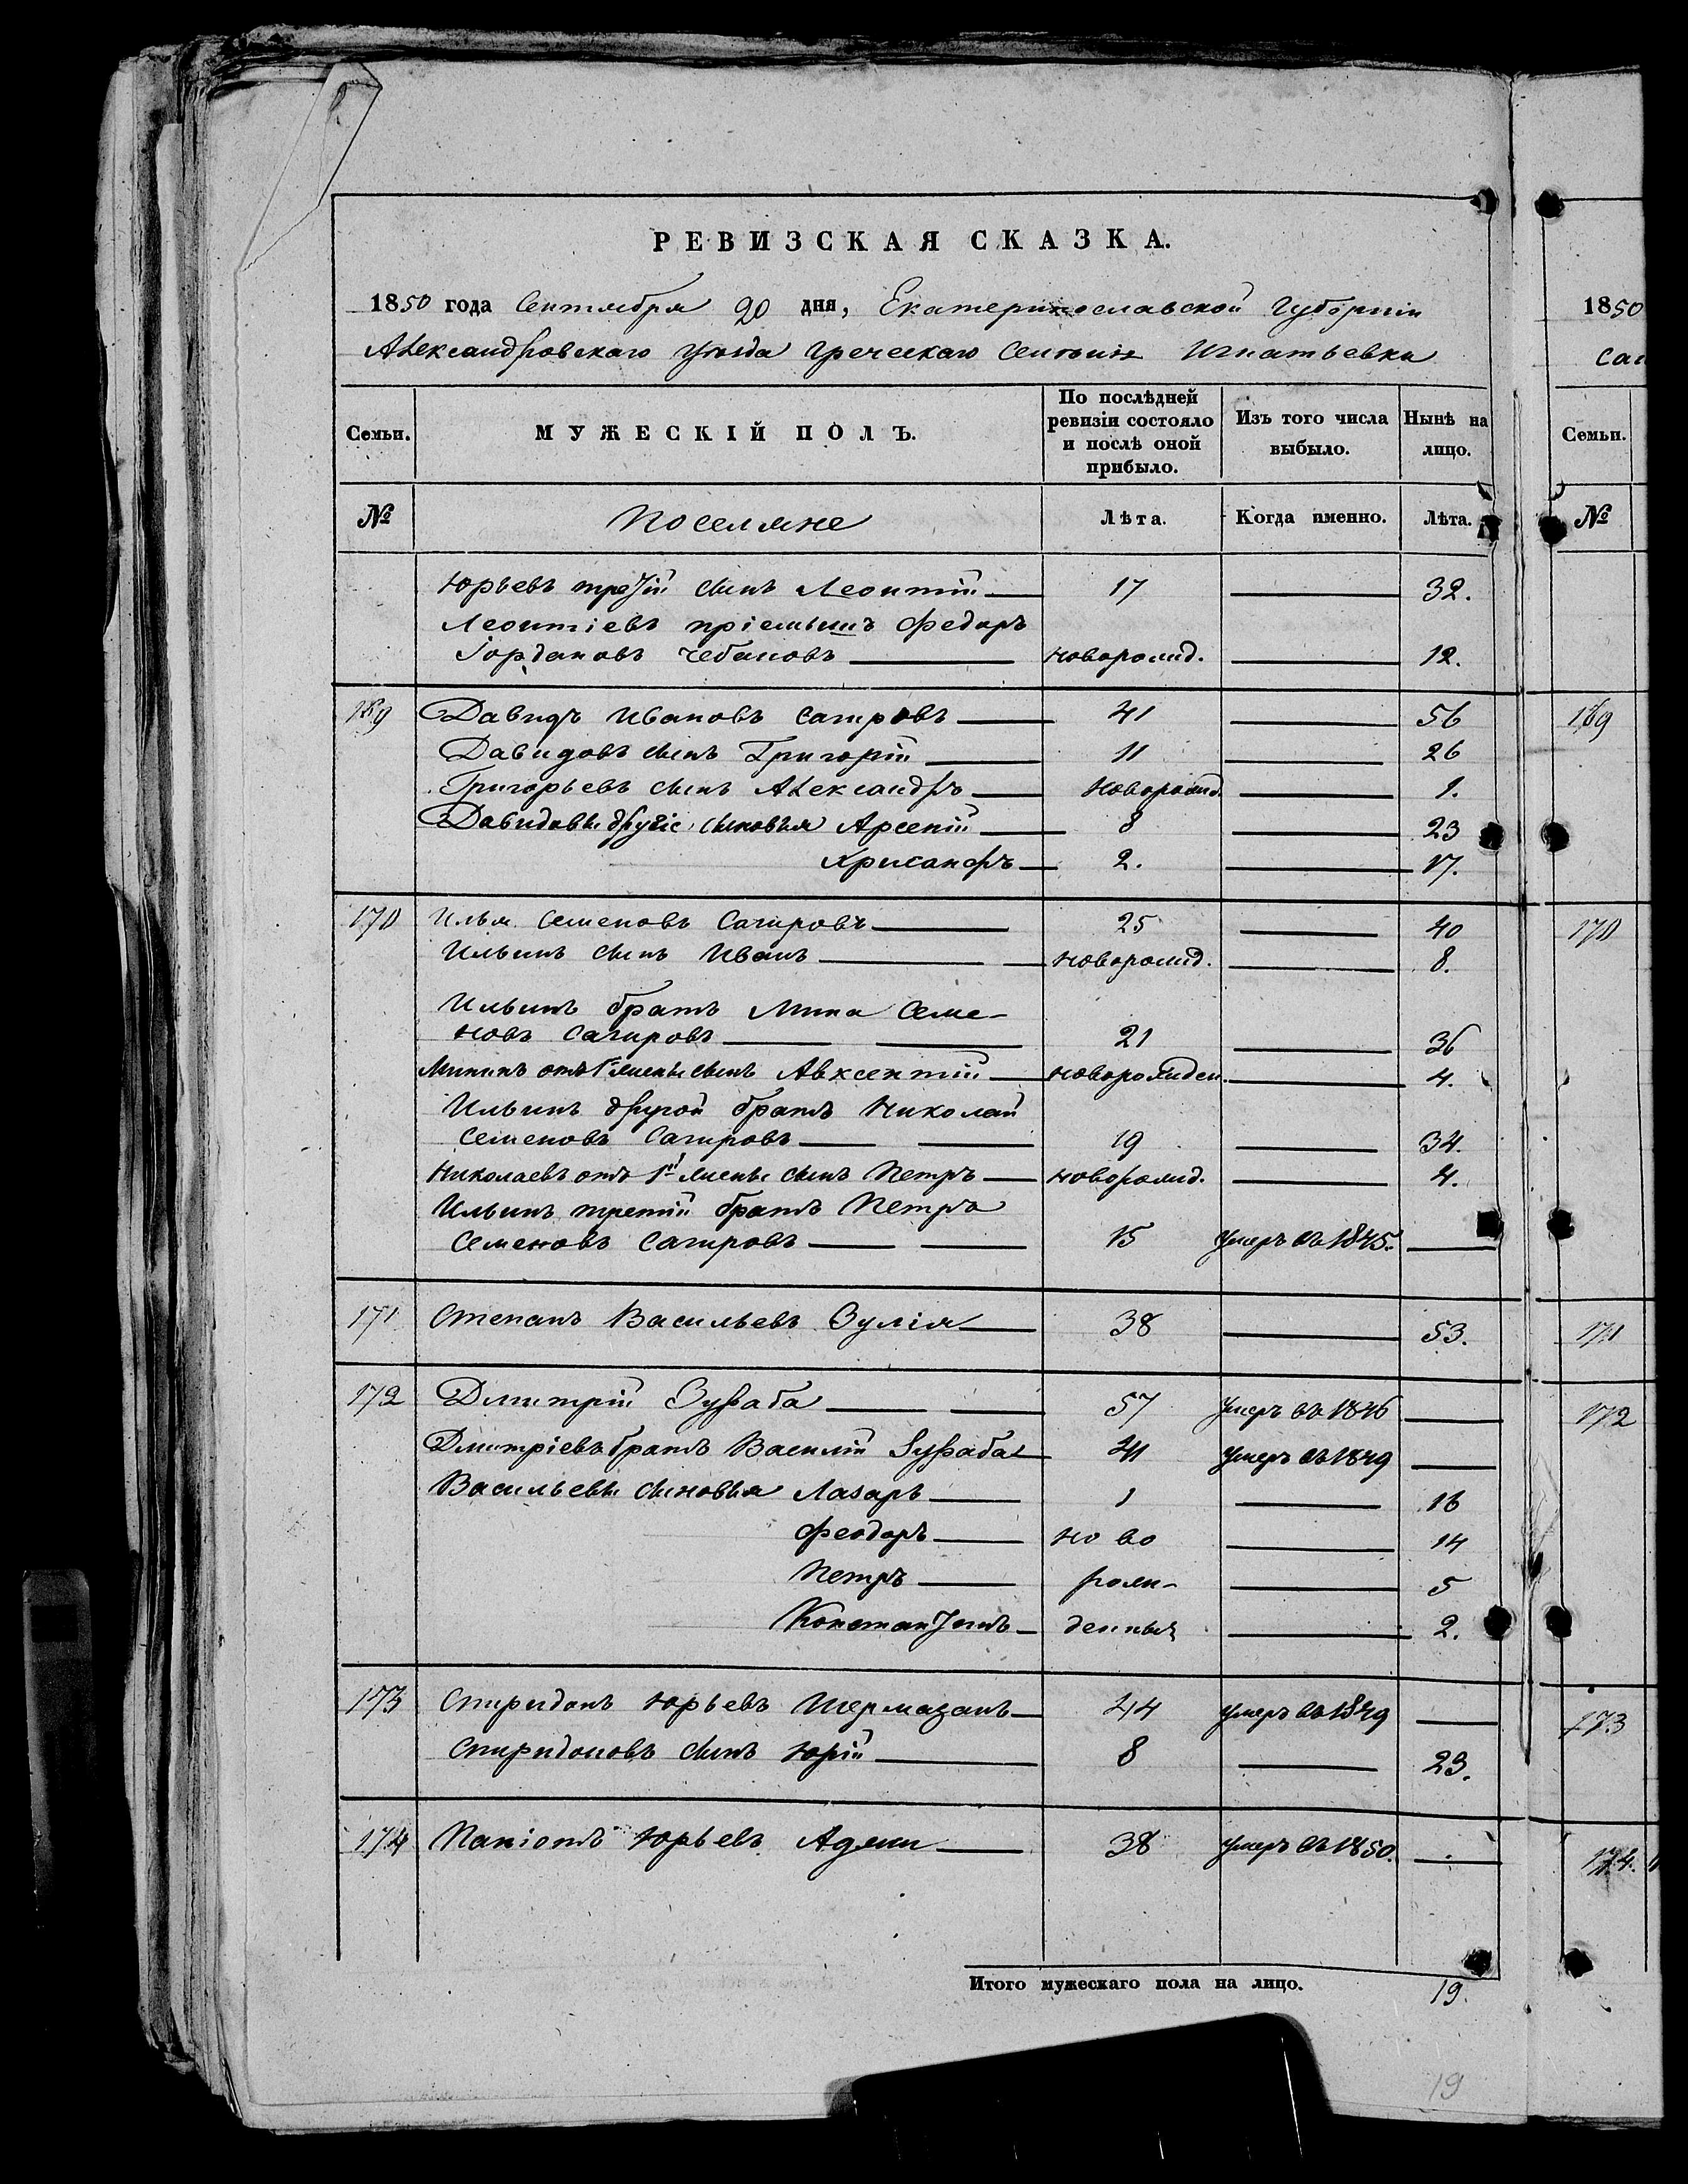 РЕВИЗСКАЯ СКАЗКА.
1850 года Сентября 20 дня, Екатеринославской Губерніи
Александровскаго уѣзда Греческаго Селенія Игнатьевки
Семьи.
МУЖЕСКІЙ ПОЛЪ.
По послѣдней ревизіи состояло и послѣ оной прибыло.
Изъ того числа выбыло.
Нынѣ на лицо.
№ Поселяне Лѣта. Когда именно. Лѣта.
Юрьевъ третій сынъ Леонтій 17 32.
Леонтіевъ пріемышъ Федоръ
Іордановъ Чебановъ новорожд. 12.
169 Давидъ Ивановъ Сагировъ 41 56
Давидовъ сынъ Григорій 11 26
Григорьевъ сынъ Александръ новорожд. 1.
Давидовы другіе сыновья Арсеній 8 23
Хрисанфъ 2. 17.
170 Илья Семеновъ Сагировъ 25 40
Ильинъ сынъ Иванъ новорожд. 8.
Ильинъ братъ Мина Семе-
новъ Сагировъ 21 36
Мининъ отъ 1й жены сынъ Авксентій новорожден. 4.
Ильинъ другой братъ Николай
Семеновъ Сагировъ 19 34.
Николаевъ отъ 1й жены сынъ Петръ новорожд. 4.
Ильинъ третій братъ Петръ
Семеновъ Сагировъ 15 умеръ въ 1845.
171 Степанъ Васильевъ Зулія 38 53.
172 Дмитрій Зураба 57 умеръ въ 1846
Дмитріевъ братъ Василій Зураба 41 умеръ въ 1849
Васильевы сыновья Лазарь 1 16
Феодоръ ново 14
Петръ рож- 5
Константинъ денные 2.
173 Спиридонъ Юрьевъ Шермазанъ 44 умеръ въ 1849
Спиридоновъ сынъ Юрій 8 23.
174 Паніотъ Юрьевъ Аджи 38 умеръ въ 1850.
Итого мужескаго пола на лицо. 19.
19
1850
Семьи.
№
169
170
171
172
173
174.